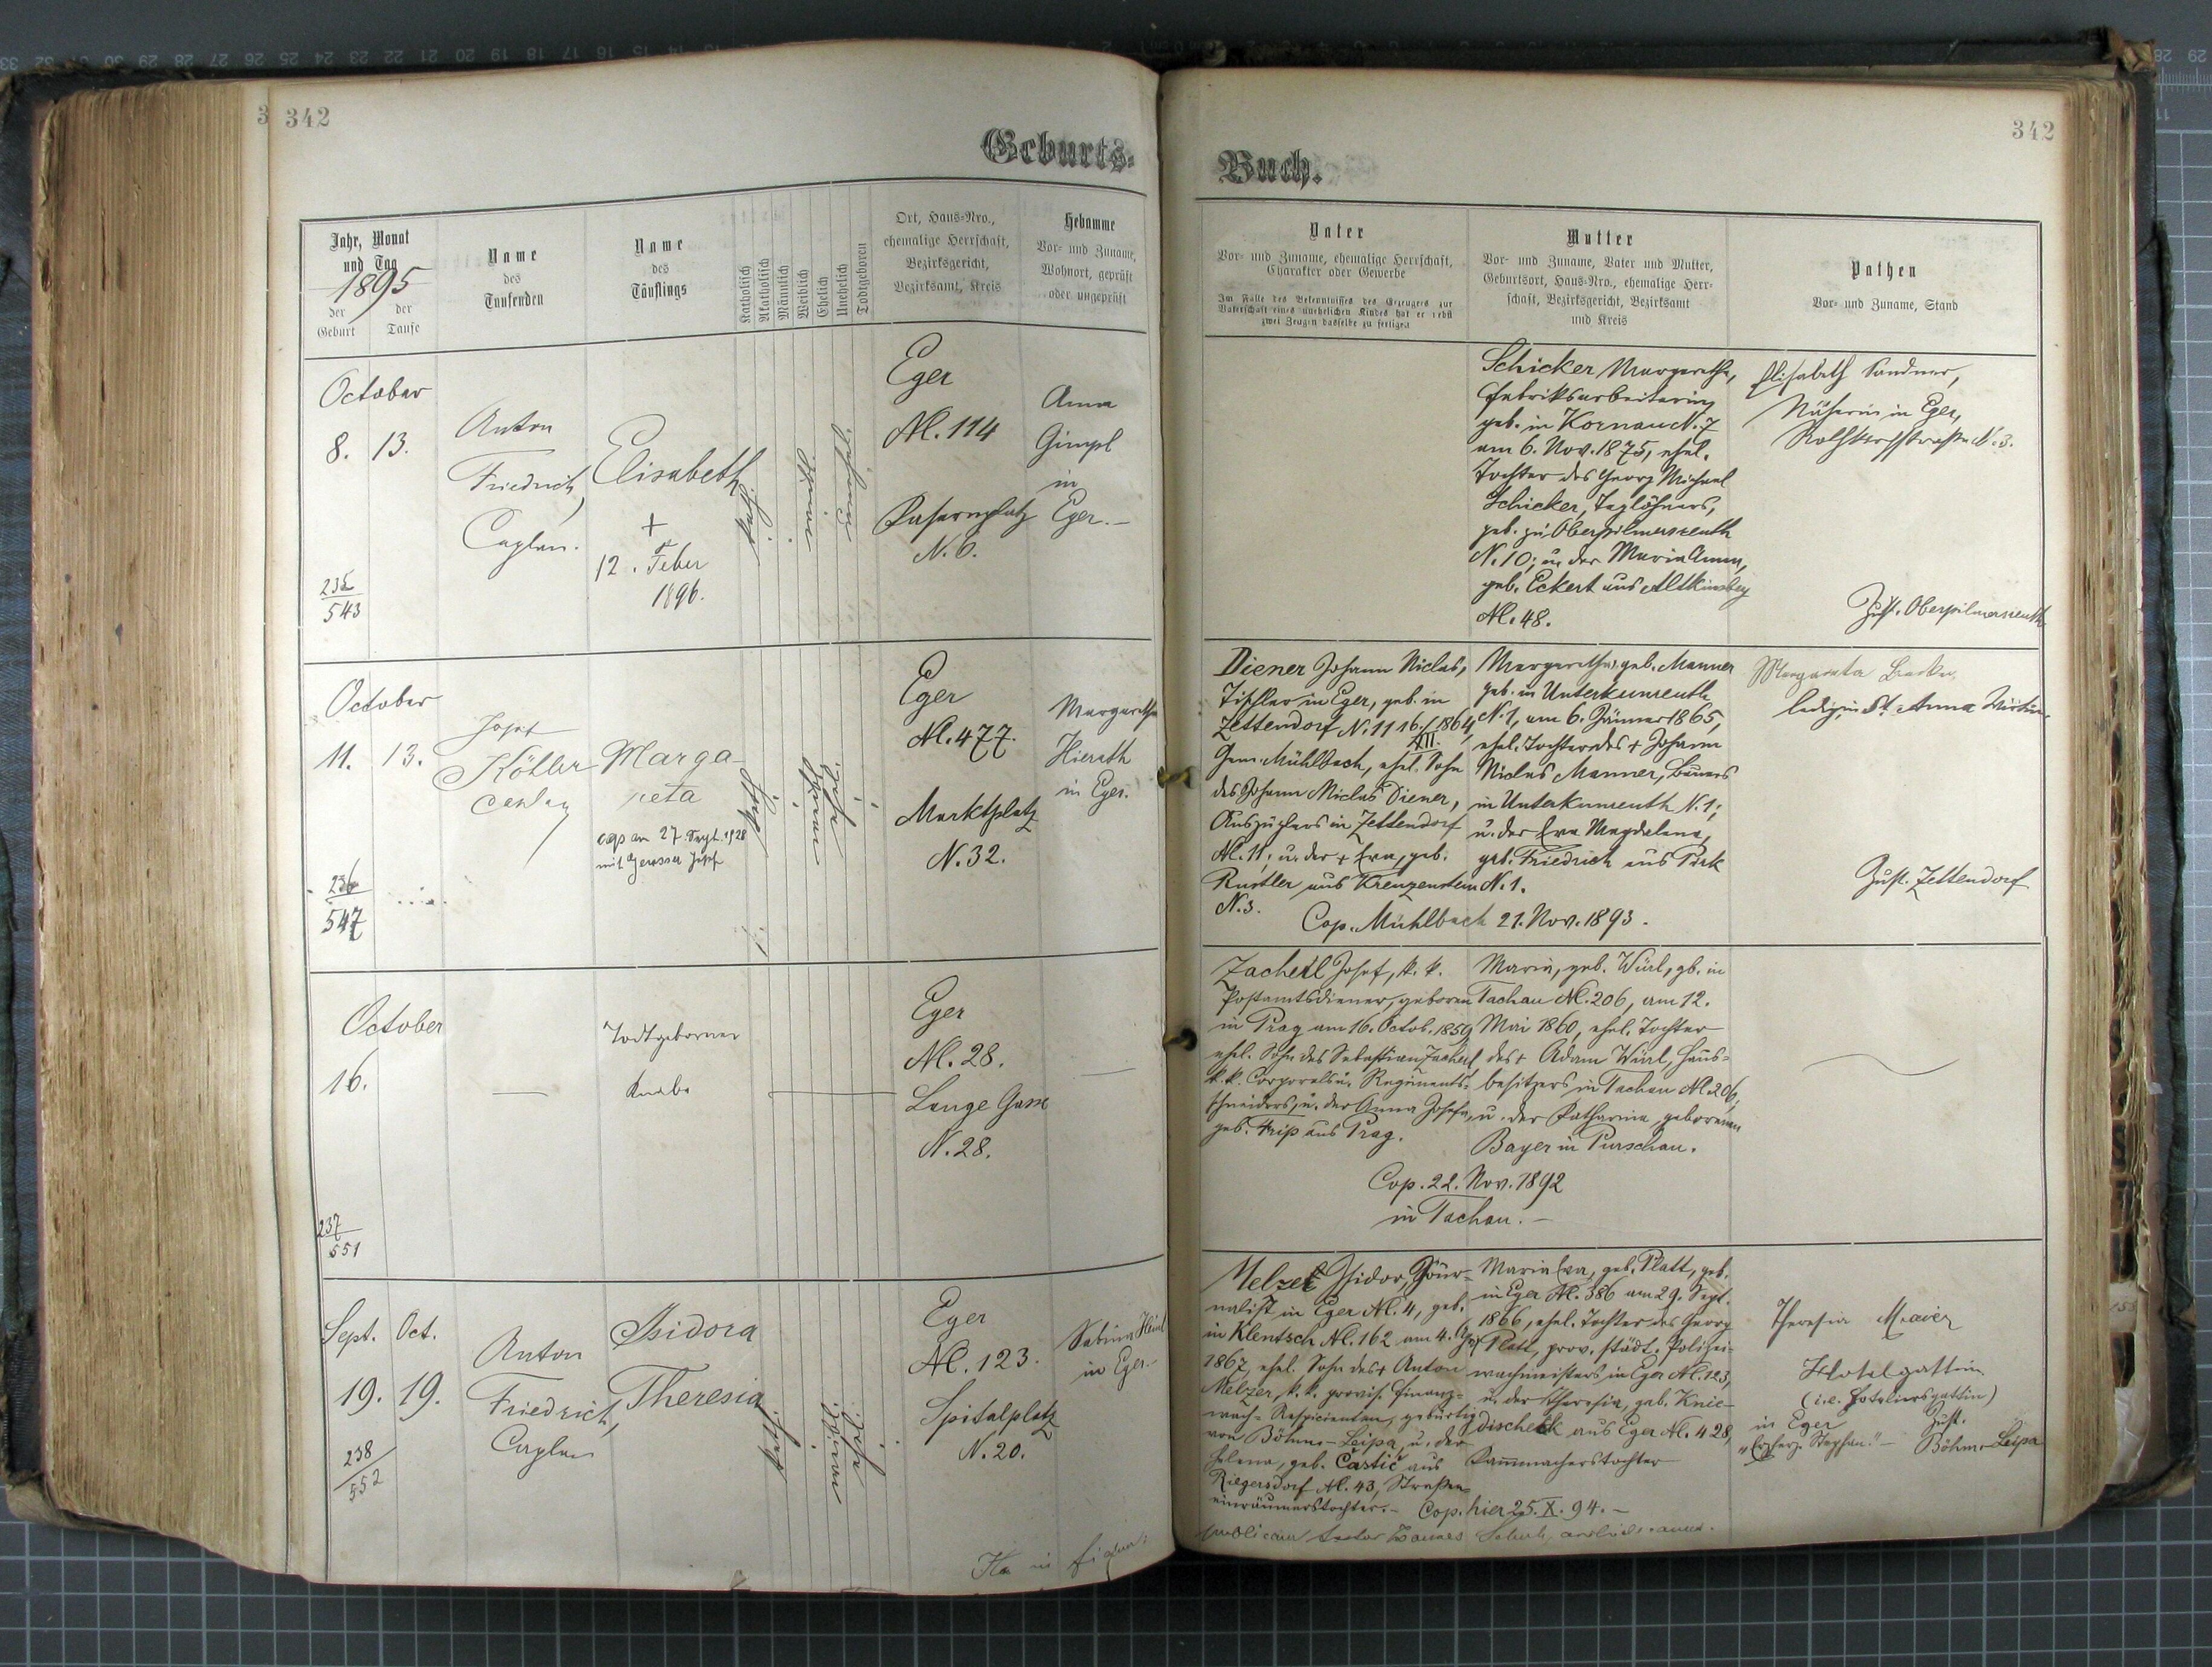 342
Geburts-
Jahr, Monat
und Tag
1895
der
Geburt
der
Taufe
Name
des
Taufenden
Name
des
Täuflings
Katholisch
Akatholisch
Männlich
Weiblich
Ehelich
Unehelich
Todtgeboren
Ort, Haus-Nro.,
ehemalige Herrschaft,
Bezirksgericht,
Bezirksamt, Kreis
Hebamme
Vor- und Zuname,
Wohnort, geprüft
oder ungeprüft
October
8. 13.
235
543
Anton
Friedrich,
Caplan.
Elisabeth
+
12. Feber
1896.
Eger
N. 114
Kasernplatz
N. 6.
Anna
Gimpl
in
Eger.-
October
11. 13.
236
547
Josef
Köhler
Marga-
reta
cop. am 27. Sept. 1928
mit Josef
Eger
N. 477.
Marktplatz
N. 32.
Margaretha
Hierath
in Eger.
October
16.
237
551
Todtgeborner
Knabe
Eger
N. 28.
Lange Gasse
N. 28.
Sept. Oct.
19. 19.
238
552
Anton
Friedrich,
Caplan
Isidora
Theresia
Eger
N. 123.
Spitalplatz
N. 20.
Sabina
in Eger.-
342
Buch.
Vater
Vor- und Zuname, ehemalige Herrschaft,
Charakter oder Gewerbe
Im Falle des Bekenntnisses des Erzeugers zur
Vaterschaft eines unehelichen Kindes hat er nebst
zwei Zeugen dasselbe zu fertigen
Mutter
Vor- und Zuname, Vater und Mutter,
Geburtsort, Haus-Nro., ehemalige Herr-
schaft, Bezirksgericht, Bezirksamt
und Kreis
Pathen
Vor- und Zuname, Stand
Schicker Margaretha,
Fabriksarbeiterin,
geb. in Kornau N. 7
am 6. Nov. 1875, ehel.
Tochter des Georg Michael
Schicker, Taglöhners,
geb. zu Oberpilmersreuth
N. 10; u. der Maria Anna,
geb. Eckert aus Altkinsberg
N. 48.
Elisabeth Sandner,
Näherin in Eger,
N. 3.
Zust. Oberpilmersreuth
Diener Johann Niclas,
Tischler in Eger, geb. in
Zettendorf N. 11 16/XII. 1864,
Gem. Mühlbach, ehel. Sohn
des Johann Niclas Diener,
Auszüglers in Zettendorf
N. 11; u. der + Eva, geb.
Rustler aus Kreuzenstein
N. 3.
Margaretha, geb. Manner
geb. in Unterkunreuth
N. 1, am 6. Jänner 1865,
ehel. Tochter des + Johann
Niclas Manner, Bauers
in Unterkunreuth N. 1;
u. der Eva Magdalena,
geb. Friedrich aus Pirk
N. 1.
Cop. Mühlbach 21. Nov. 1893.
Margareta
ledig in St. Anna Wirtin.
Zust. Zettendorf
Zacherl Josef, k. k.
Postamtsdiener, geboren
in Prag am 16. Octob. 1859
ehel. Sohn des Sebastian Zacherl
k. k. Corporals u. Regiments-
schneiders, u. der Anna Josefa,
geb. aus Prag.
Maria, geb. Würl, gb. in
Tachau N. 206, am 12.
Mai 1860, ehel. Tochter
des + Adam Würl, Haus-
besitzers in Tachau N. 206,
u. der Katharina geborenen
Bayer in Purschau.
Cop. 22. Nov. 1892
in Tachau.-
Melzer Isidor, Jour-
nalist in Eger N. 4, geb.
in Klentsch N. 162 am 4.
1867, ehel. Sohn des + Anton
Melzer, k. k. provis. Finanz-
wach-Respicienten, gebürtig
von Böhm.-Leipa, u. der
Helena, geb. Častič aus
Riegersdorf N. 43, Straßen-
einräumerstochter.-
Maria Eva, geb. Platt, geb.
in Eger N. 386 am 29. Sept.
1866, ehel. Tochter des Georg
Platt, prov. städt. Polizei-
wachmeisters in Eger N. 123,
u. der Theresia, geb. Knie-
discheck aus Eger N. 428,
Kammmacherstochter
Cop. hier 25. X. 94.-
Theresia Maier
Hotelgattin
(i.e. Hoteliersgattin)
in Eger
"Erzherz. Stephan."-
Zust.
Böhm.-Leipa